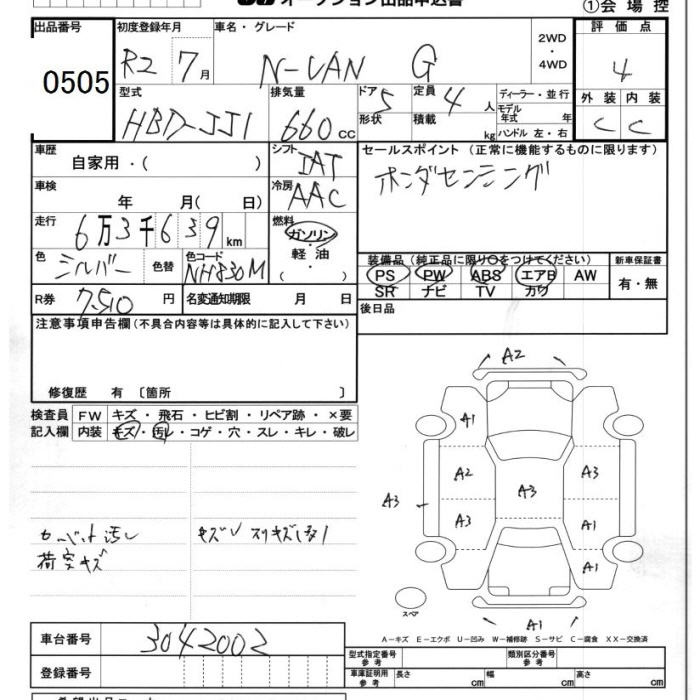 オークション出品申込書
①会場控
出品番号 初度登録年月 車名・グレード 2WD・4WD 評価点
0505 R2 7月 N-VAN G 4
型式 排気量 ドア 5 定員 4人 ディーラー・並行 外装 内装
HBD-JJ1 660cc 形状 積載 kg モデル年式 年 C C
ハンドル 左・右
車歴 自家用・( ) シフト IAT セールスポイント(正常に機能するものに限ります)
車検 年 月( 日) 冷房 AAC ホンダセンシング
走行 6万3千639km 燃料 ガソリン・軽油・( )
色 シルバー 色替 色コード NH830M 装備品(純正品に限り○をつけてください) 新車保証書
PS PW ABS エアB AW 有・無
SR ナビ TV カワ
R券 7,510円 名変通知期限 月 日
後日品
注意事項申告欄(不具合内容等は具体的に記入して下さい)
修復歴 有 〔箇所 〕
検査員 FW キズ・飛石・ヒビ割・リペア跡・×要
記入欄 内装 キズ・汚レ・コゲ・穴・スレ・キレ・破レ
カーペット汚レ
荷室キズ
A2
A1
A2 A3
A3 A3
A3 A1
A1
A1
スペア
A-キズ E-エクボ U-凹み W-補修跡 S-サビ C-腐食 XX-交換済
車台番号 3042002
登録番号
型式指定番号 参考 類別区分番号 参考
車庫証明用 参考 長さ cm 幅 cm 高さ cm